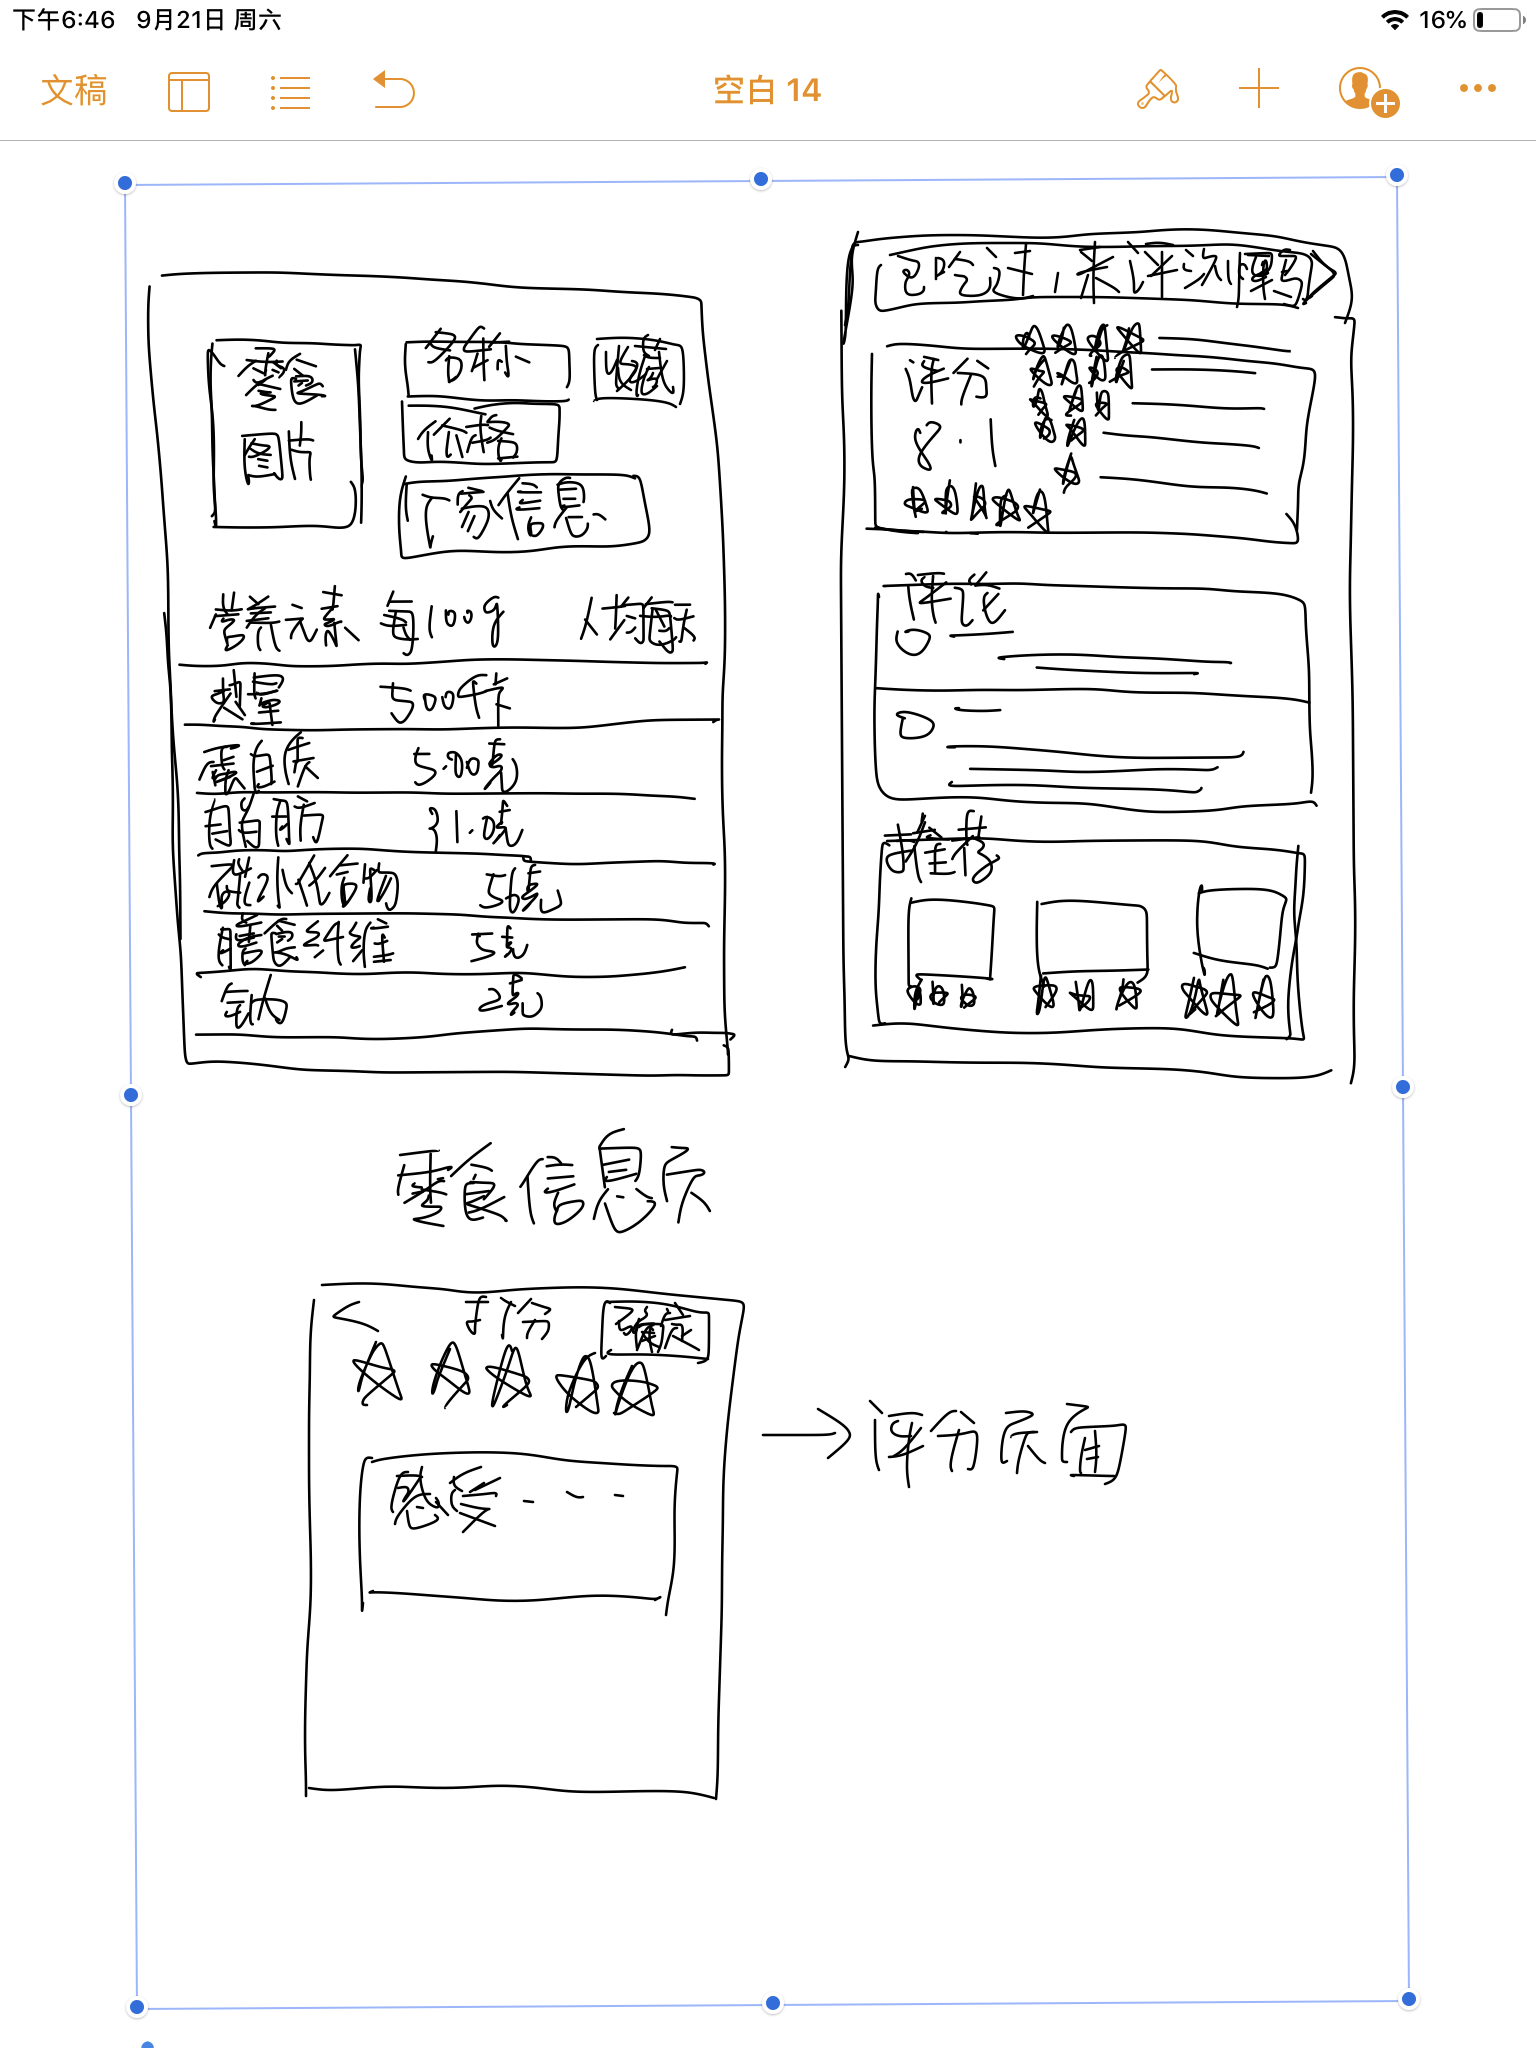 下午6:46 9月21日 周六
16%
文稿
空白 14
零食
图片
名称
收藏
价格
厂家信息
营养元素 每100g 人均每天
热量 500千卡
蛋白质 5.00克
脂肪 31.0克
碳水化合物 56克
膳食纤维 5克
钠 2克
已吃过，来评测
评分
8.1
评论
推荐
零食信息页
< 打分 确定
感受...
→评分页面